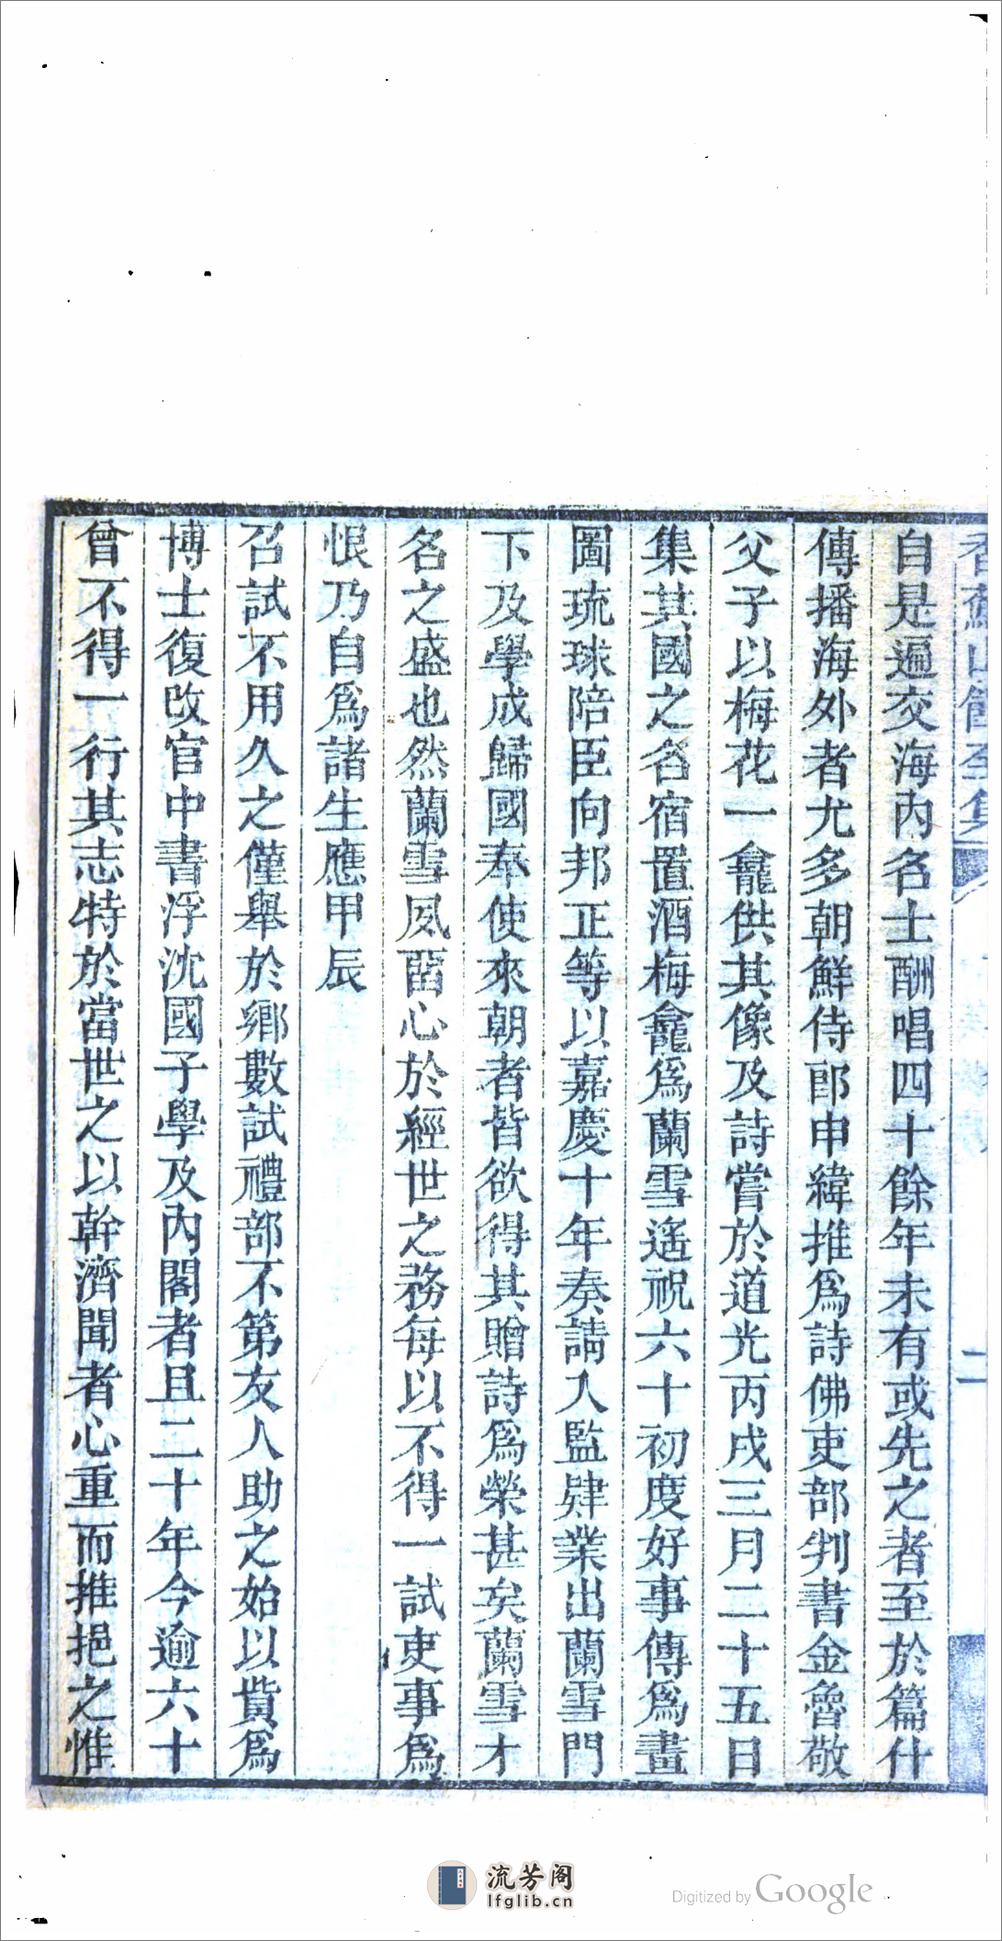 香蘇山館全集
二
自是遍交海內名士酬唱四十餘年未有或先之者至於篇什
傳播海外者尤多朝鮮侍郎申緯推爲詩佛吏部判書金魯敬
父子以梅花一龕供其像及詩嘗於道光丙戌三月二十五日
集其國之名宿置酒梅龕爲蘭雪遙祝六十初度好事傳爲畫
圖琉球陪臣向邦正等以嘉慶十年奏請入監肄業出蘭雪門
下及學成歸國奉使來朝者皆欲得其贈詩爲榮甚矣蘭雪才
名之盛也然蘭雪夙畱心於經世之務每以不得一試吏事爲
恨乃自爲諸生應甲辰
召試不用久之僅舉於鄉數試禮部不第友人助之始以貲爲
博士復改官中書浮沈國子學及內閣者且二十年今逾六十
曾不得一行其志特於當世之以幹濟聞者心重而推挹之惟
流芳阁
lfglib.cn
Digitized by Google